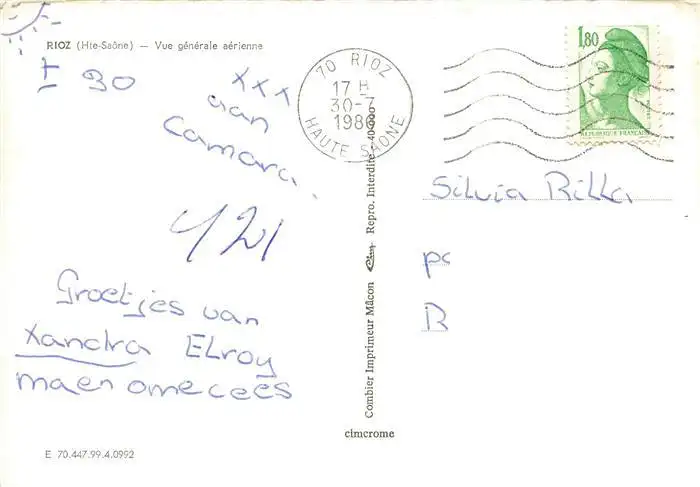 RIOZ (Hte-Saône) — Vue générale aérienne
± 30
xxx
aan
Camara.
421
Groetjes van
Xandra ELroy
ma en ome cees
E 70.447.99.4.0992
70 RIOZ
17 H
30-7
1986
HAUTE SAONE
Combier Imprimeur Mâcon Cim Repro. Interdite
cimcrome
1,80
REPUBLIQUE FRANÇAISE
Silvia Rilla